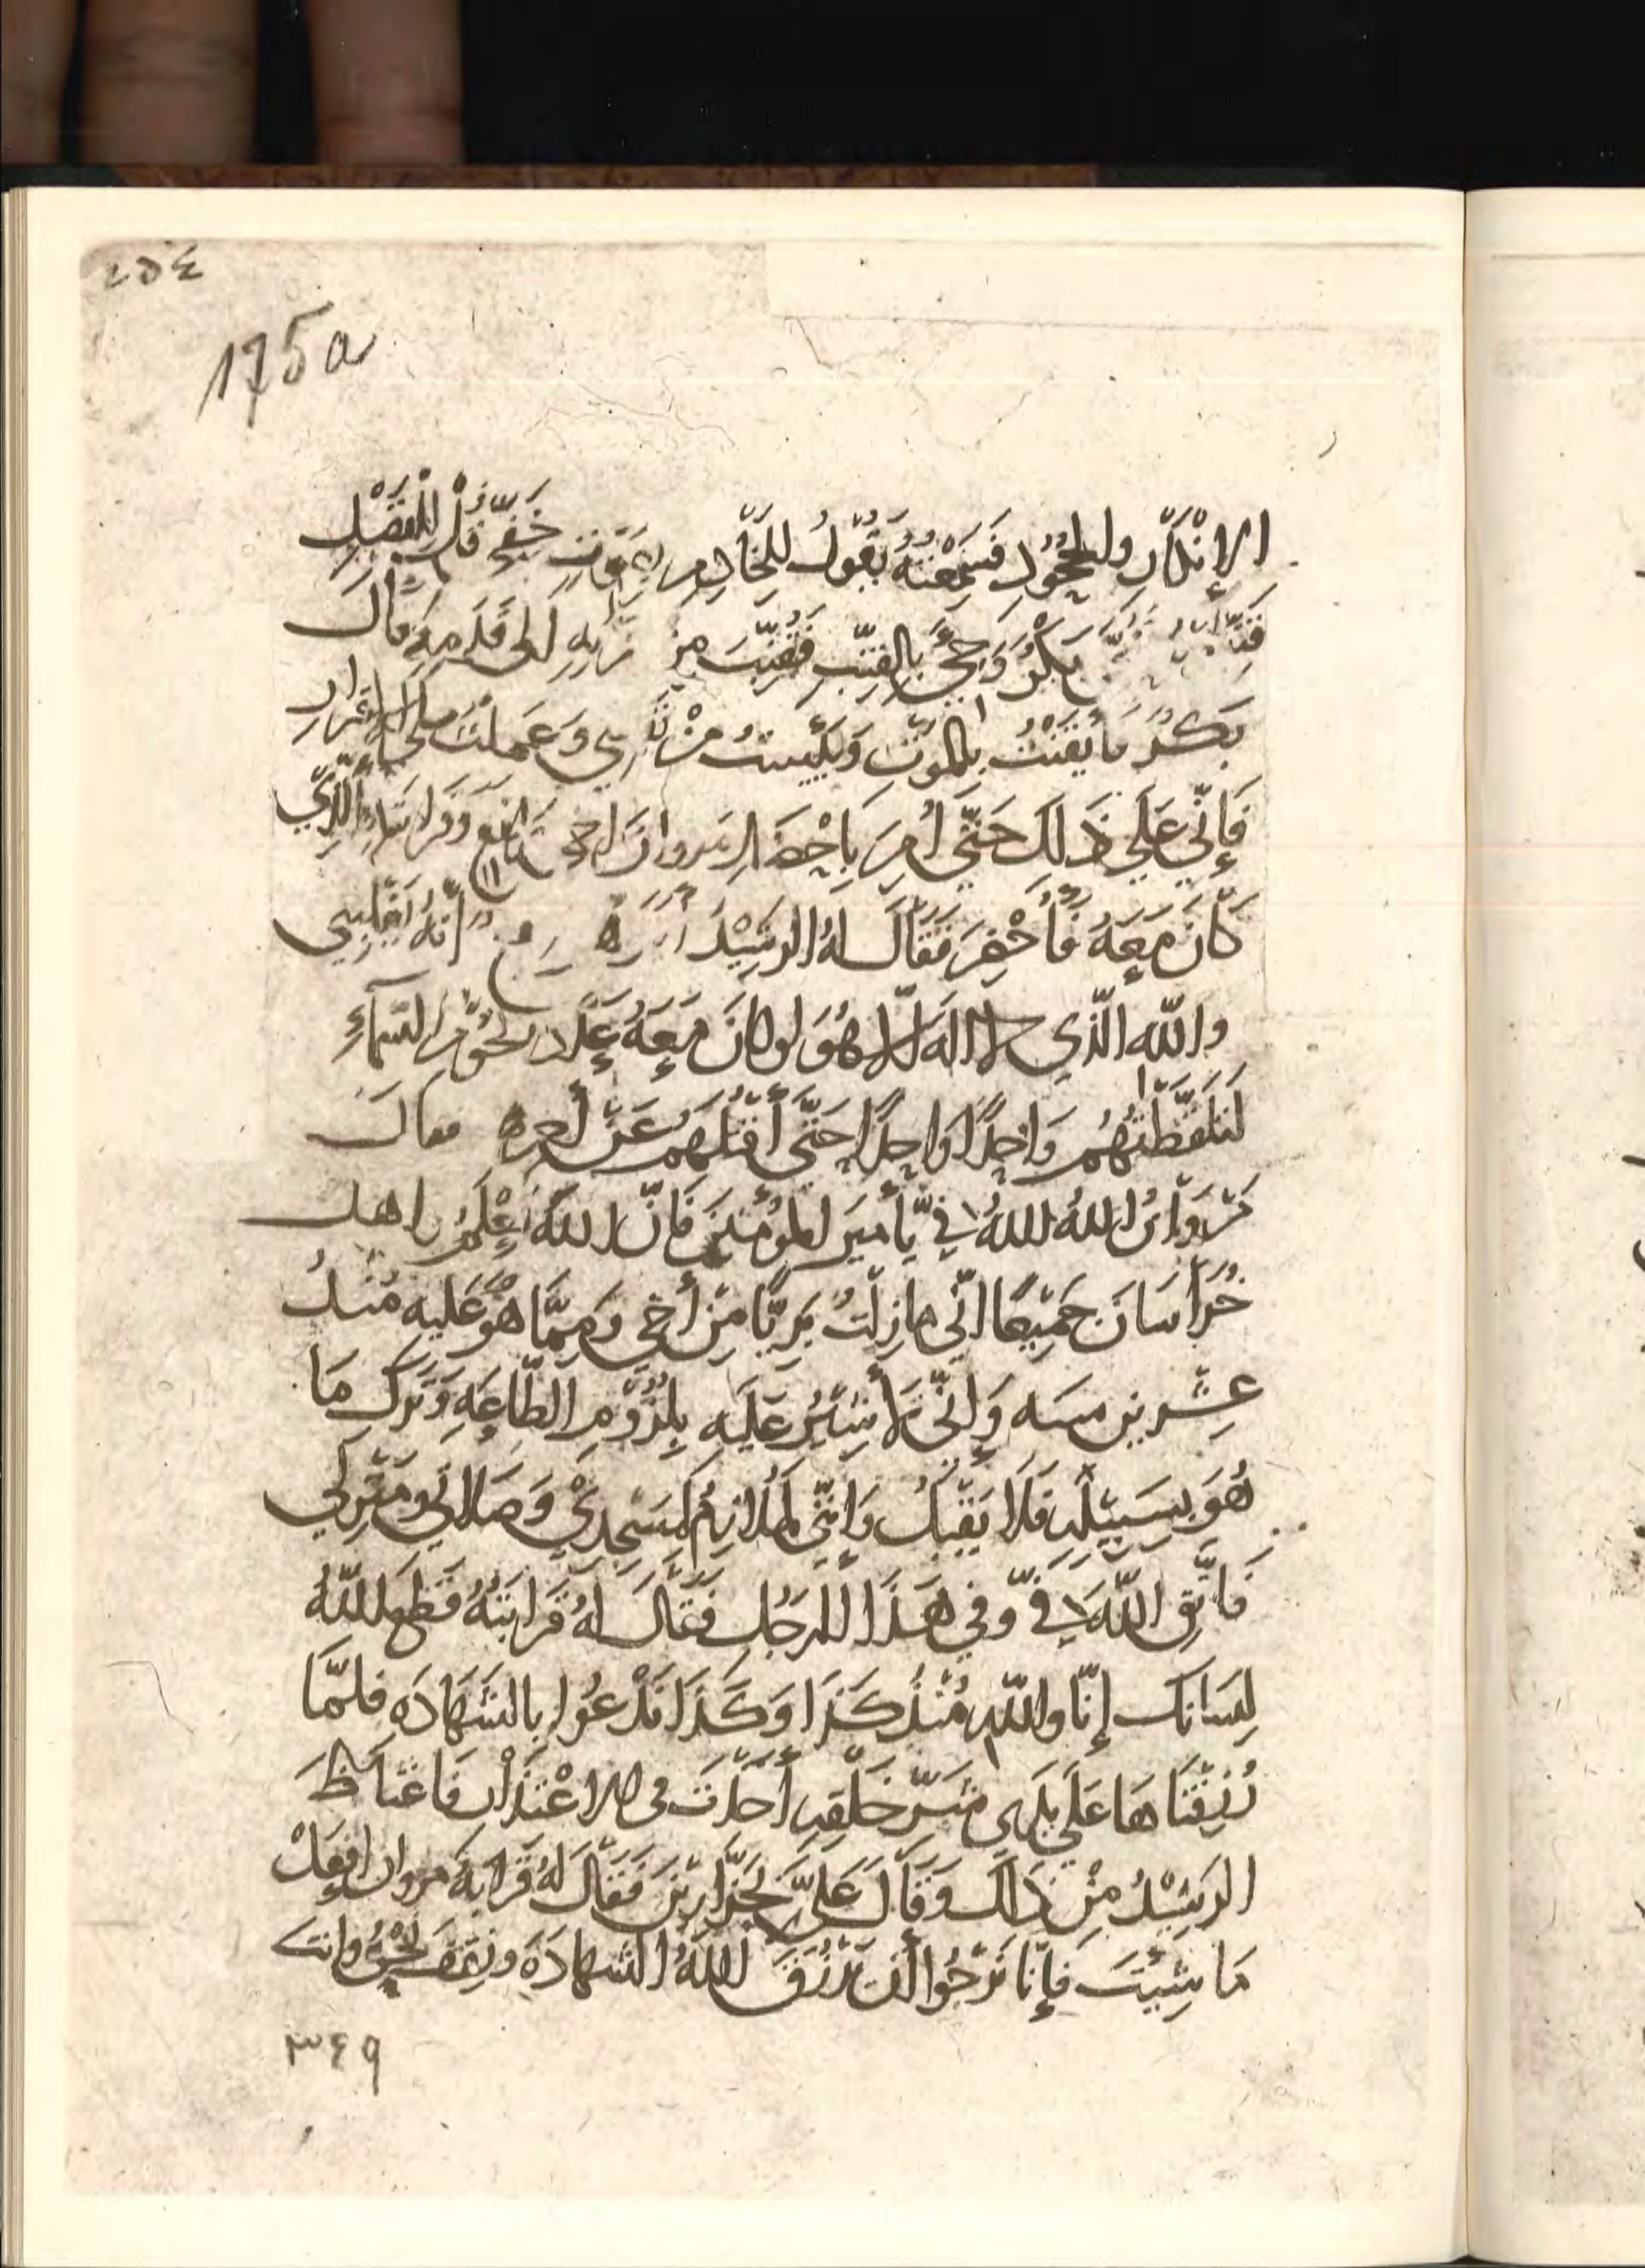 ٢٥٤
175a
الإنكارِ والجُحُودِ فسَمِعْتُهُ يَقُولُ للخَادِمِ بصَوتٍ خَفِيٍّ قُل للفَضْلِ
بَكْرٌ وَجِيَ بالقِنَّبِ فَقُنِّبَ من قَرنِهِ الى قَدَمِهِ قالَ
بَكْرٌ فأيقَنْتُ بِالمَوتِ وَيَئِستُ مِنْ نَفْسِي وَعَمِلتُ على الاقرارِ
فَإنّي عَلي ذَلِكَ حَتّى أُمِرَ بِإحْضَارِ مروانَ اخي رَافِعٍ وَقَرابَتِهِ الَّذِي
كانَ مَعَهُ فَأُحْضِرَ فَقَالَ لهُ الرشيْدُ أنّهُ يَغْلِبُنِي
واللّه الّذي لا الهَ الا هُوَ لو كانَ مَعَهُ عَدَدُ نجُومِ السَّمآءِ
لَتَلَقَّطْتُهُم وَاحِدًا وَاحِدًا حَتَّى أَقتُلَهُم عَنْ أخرهِ فقالَ
مَروَانُ اللهُ اللهُ فيَّ يأميرَ المُؤمنينَ فَإنَّ اللهَ يَعْلَمُ واهل
خُرَاسَانَ جَمِيْعًا انّي مازِلتُ بَرِيًّا مِنْ أخي وَمِمَّا هُوَ عَليهِ مُنذُ
عِشرِينَ سنه وَإنّي لأُشيْرُ عَلَيهِ بِلُزُومِ الطَّاعَةِ وَتَركِ مَا
هُوَ بِسَبِيْلِهِ فَلَا يَقْبَلُ وَإنّي لمُلازِمٌ لمَسْجِدِيْ وَصَلاتي ومَنْزِلي
فَاتَّقِ اللَّهَ فيَّ وفي هَذَا الرجُلِ فَقَالَ لهُ قَرابَتُهُ قَطَعَ اللّهُ
لِسَانَك إنّا واللّهِ مُنْذُ كَذَا وَكَذَا نَدْعُوا بالشَهَادَه فلمّا
رُزِقْنَاهَا عَلَي يَدَي شَرِّ خَلْقِهِ أخَذْتَ في الاعْتذَارِ فَاغْتَاظَ
الرشِيْدُ مِنْ ذَلكَ وَقَالَ عَلَيَّ بجَزَّارَيْنِ فَقَالَ لهُ قَرَابةُ مروان افْعَلْ
مَا شِئْتَ فَإنّا نَرْجُوا أنْ نُرْزَقَ اللهُ الشهادَةَ ونقف نحن وانت
٣٤٩